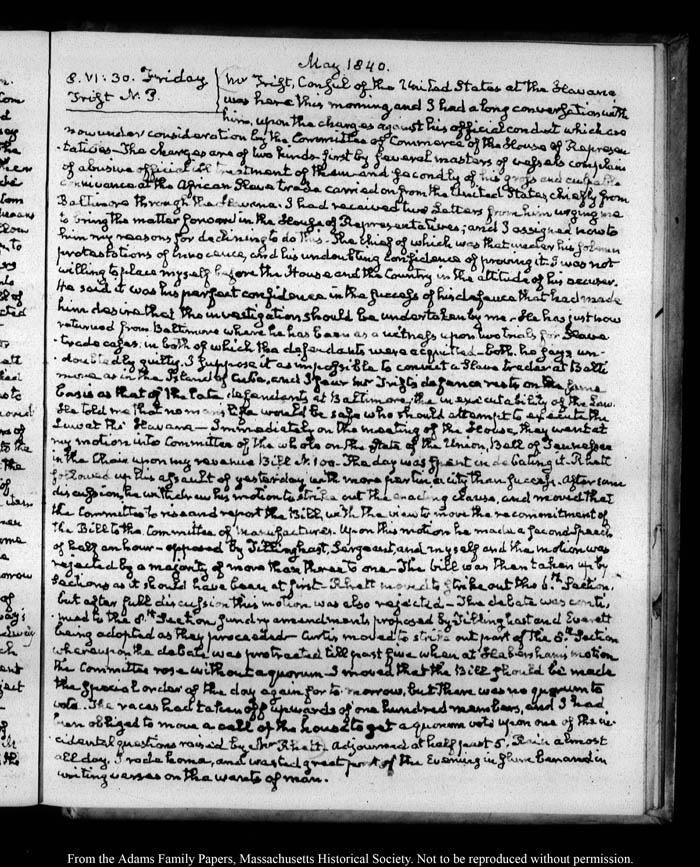 May 1840.
8. VI: 30. Friday
Trist N. P.
Mr Trist, Consul of the United States at the Havana
was here this morning and I had a long conversation with
him, upon the charges against his official conduct which are
now under consideration by the Committee of Commerce of the House of Represen-
tatives. The charges are of two kinds. first by several masters of vessels complain
of abusive official ill treatment of them and secondly of his gross and culpable
connivance at the African Slave trade carried on from the United States chiefly from
Baltimore through the Havana. I had received two Letters from him urging me
to bring the matter forward in the House of Representatives; and I assigned now to
him my reasons for declining to do this. The chief of which was that under his solemn
protestations of innocence, and his undoubting confidence of proving it I was not
willing to place myself before the House and the Country in the attitude of his accuser.
He said it was his perfect confidence in the success of his defence that had made
him desire that the investigation should be undertaken by me. He has just now
returned from Baltimore where he has been as a witness upon two trials for Slave
trade cases. in both of which the defendants were acquitted. both. he says un-
doubtedly guilty. I suppose it as impossible to convict a Slave trader at Balti
more as in the Island of Cuba, and I fear Mr Trist's defence rests on the same
basis as that of the late defendants at Baltimore, the inexecutability of the Law.
He told me that no man's life would be safe who should attempt to execute the
Law at the Havana — Immediately on the meeting of the House, they went at
my motion into Committee of the whole on the State of the Union, Bell of Tennessee
in the Chair upon my revenue Bill N. 100. The day was spent in debating it. Rhett
followed up his assault of yesterday with more pertinacity than success. After some
discussion, he withdrew his motion to strike out the enacting clause, and moved that
the Committee to rise and report the Bill, with the view to move the recommitment of
the Bill to the Committee of Manufactures. Upon this motion he made a second speech
of half an hour — opposed by Tillinghast, Sergeant, and myself and the motion was
rejected by a majority of more than three to one. The bill was then taken up by
Sections as it should have been at first. Rhett moved to strike out the 6.th Section,
but after full discussion this motion was also rejected — The debate was conti,
nued to the 8.th Section sundry amendments proposed by Tillinghast and Everett
being adopted as they proceeded — Curtis moved to strike out part of the 8.th Section
whereupon the debate was protracted till past five when at Habersham's motion
the Committee rose without a quorum. I moved that the Bill should be made
the special order of the day again for to-morrow, but there was no quorum to
vote. The races had taken off upwards of one hundred members, and I had
been obliged to move a call of the house to get a quorum vote upon one of the in-
cidental questions raised by Mr Rhett. Adjourned at half past 5. Rain almost
all day. I rode home, and wasted great part of the Evening in and in
writing verses on the wants of man.
From the Adams Family Papers, Massachusetts Historical Society. Not to be reproduced without permission.